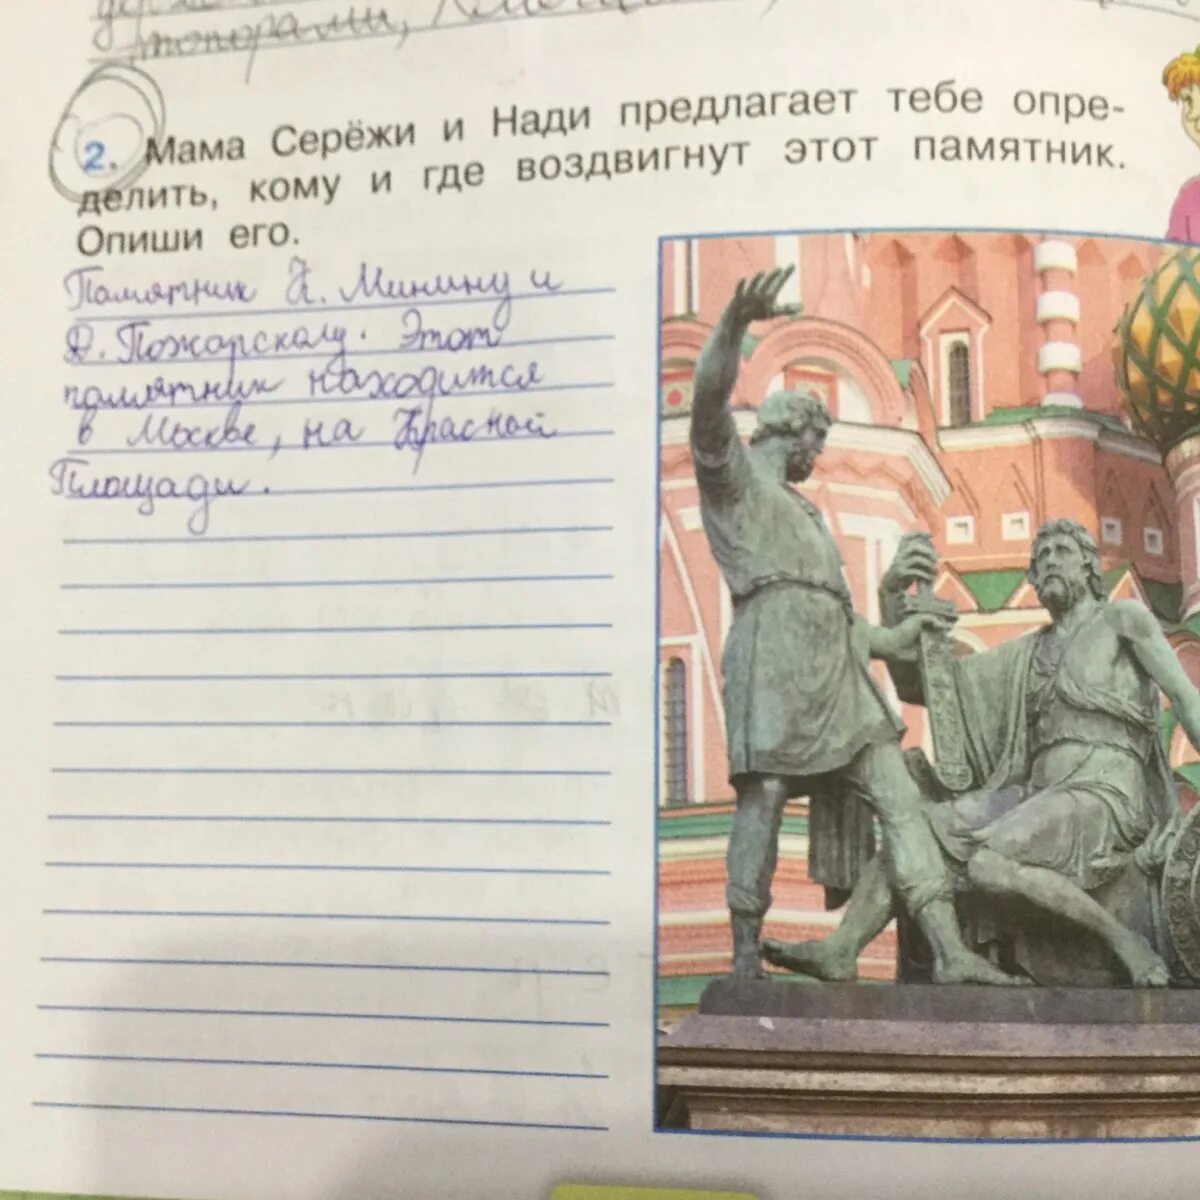 топорами,
2. Мама Серёжи и Нади предлагает тебе опре-
делить, кому и где воздвигнут этот памятник.
Опиши его.
Памятник К. Минину и
Д. Пожарскому. Этот
памятник находится
в Москве, на Красной
Площади.